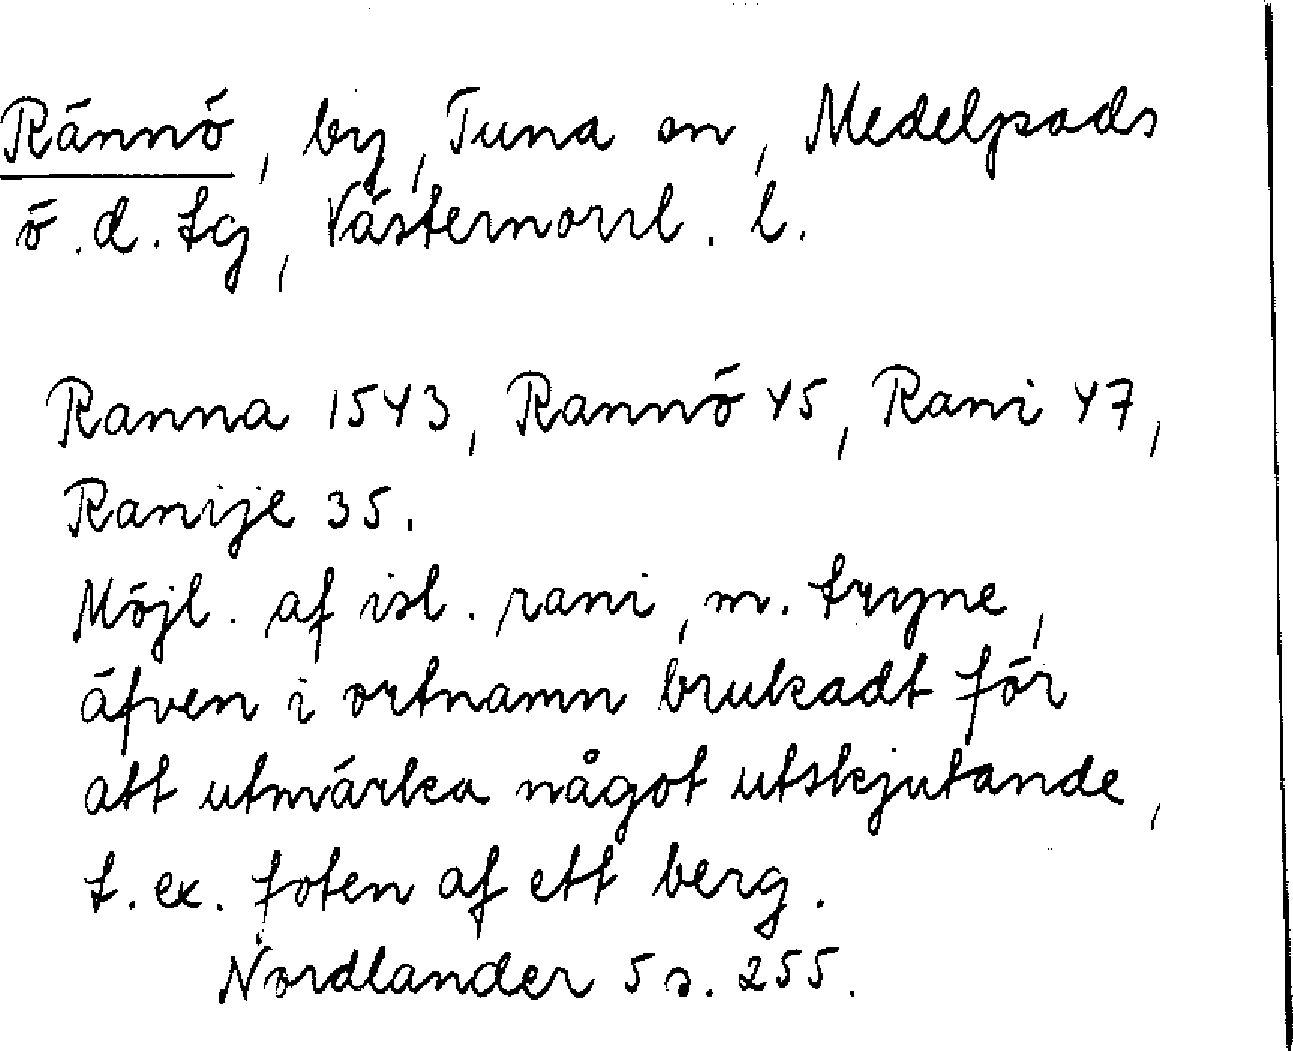 Rännö, by, Tuna sn, Medelpads
ö.d. tg, Västernorrl. l.
Ranna 1543, Rannö 45, Rani 47,
Ranije 35.
Möjl. af isl. rani, m. tryne,
äfven i ortnamn brukadt för
att utmärka något utskjutande,
t. ex. foten af ett berg.
Nordlander 5 s. 255.